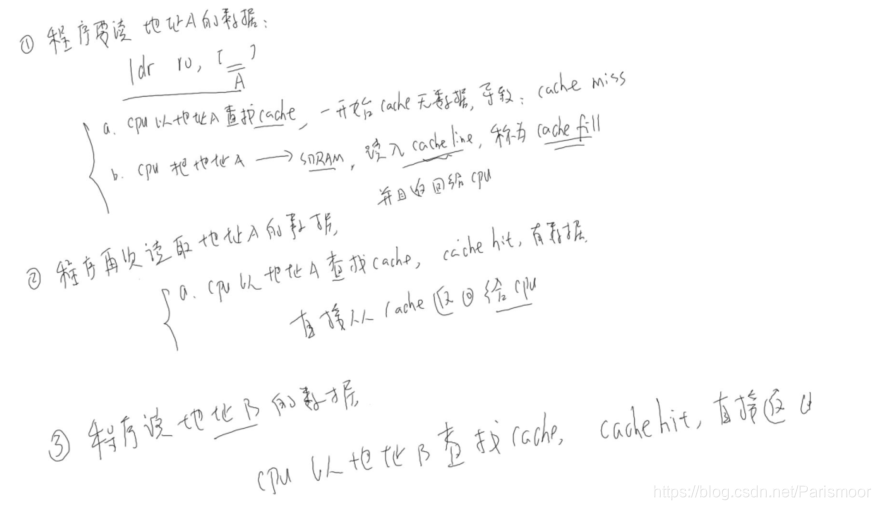 ① 程序要读 地址A的数据:
ldr r0, [A]
a. cpu 以地址A查找cache, 一开始cache无数据, 导致: cache miss
b. cpu 把地址A → SDRAM, 读入 cache line, 称为 cache fill
并且返回给cpu
② 程序再次读取地址A的数据,
a. cpu 以地址A查找cache, cache hit, 有数据.
直接从cache返回给cpu
③ 程序读地址B的数据
cpu 以地址B查找cache, cache hit, 直接返回
https://blog.csdn.net/Parismoor